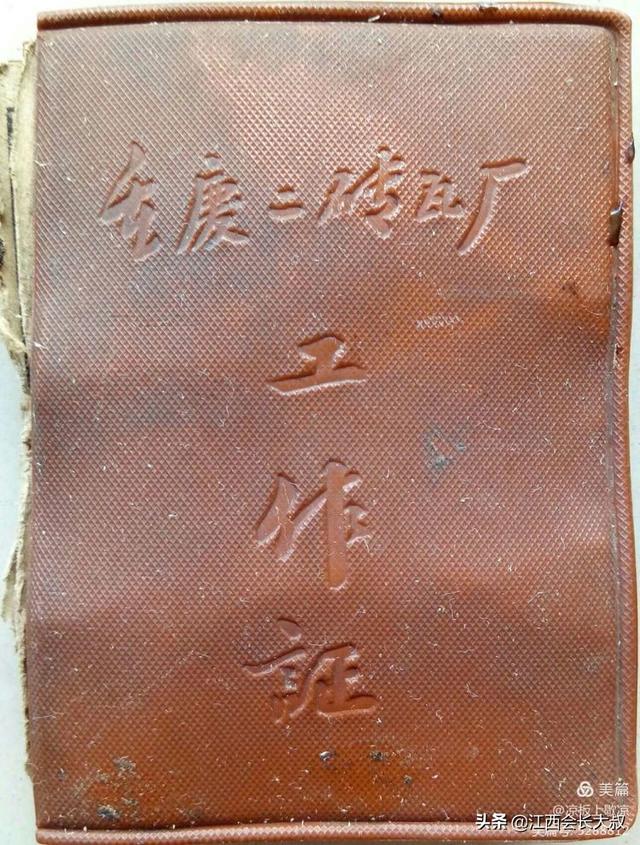 重庆二砖瓦厂
工
作
証
美篇
@凉板上歇凉
头条 @江西会长大叔